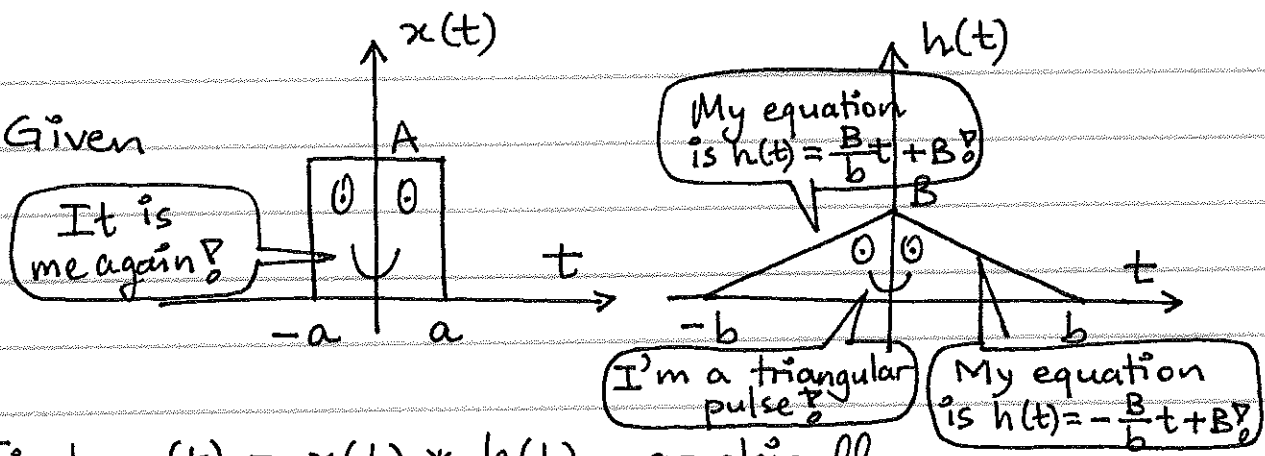 Given
x(t)
A
It is
me again!
t
-a
a
h(t)
My equation
is h(t) = B/b t + B!
B
t
-b
b
I'm a triangular
pulse!
My equation
is h(t) = -B/b t + B!